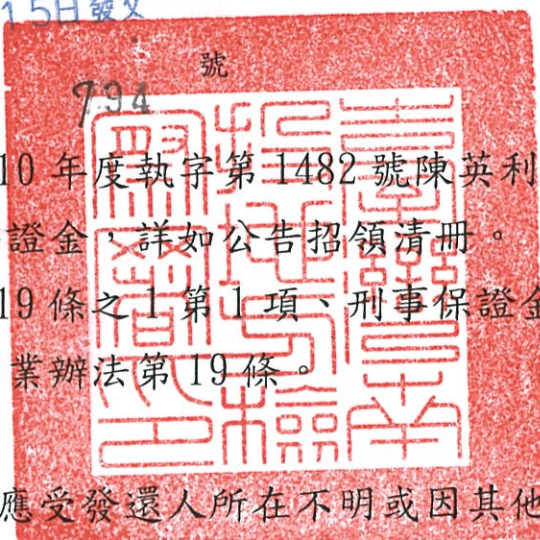 15日發文
號
794
10年度執字第1482號陳英利
證金，詳如公告招領清冊。
19條之1第1項、刑事保證金
業辦法第19條。
應受發還人所在不明或因其他
臺灣臺南地方檢察署印